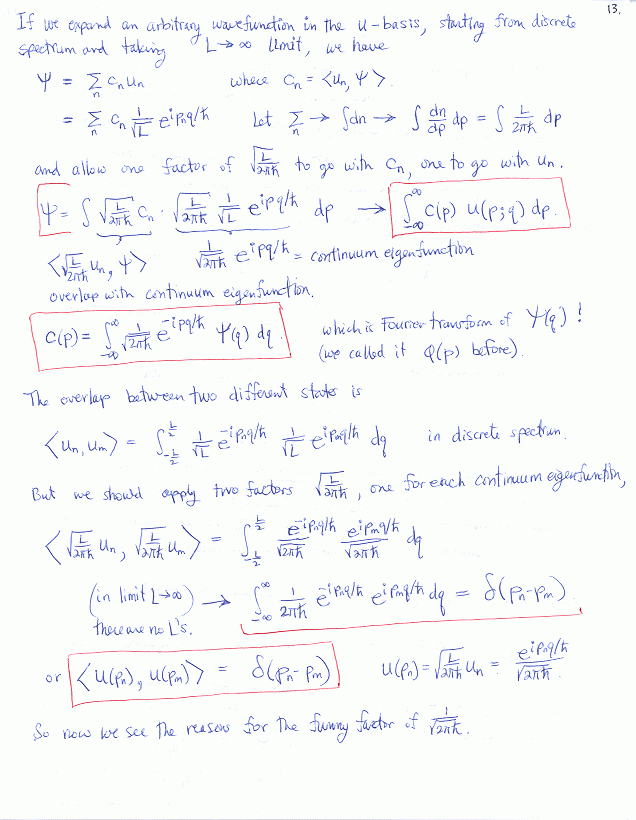 13.
If we expand an arbitrary wavefunction in the u-basis, starting from discrete
spectrum and taking L→∞ limit, we have
Ψ = Σ_n c_n u_n where c_n = <u_n, Ψ>.
= Σ_n c_n 1/√L e^{ip_n q/ħ} Let Σ_n → ∫dn → ∫ dn/dp dp = ∫ L/2πħ dp
and allow one factor of √(L/2πħ) to go with c_n, one to go with u_n.
Ψ = ∫ √(L/2πħ) c_n · √(L/2πħ) 1/√L e^{ipq/ħ} dp → ∫_{-∞}^{∞} c(p) u(p;q) dp.
<√(L/2πħ) u_n, Ψ> 1/√(2πħ) e^{ipq/ħ} = continuum eigenfunction
overlap with continuum eigenfunction.
c(p) = ∫_{-∞}^{∞} 1/√(2πħ) e^{-ipq/ħ} Ψ(q) dq. which is Fourier transform of Ψ(q)!
(we called it φ(p) before).
The overlap between two different states is
<u_n, u_m> = ∫_{-L/2}^{L/2} 1/√L e^{-ip_n q/ħ} 1/√L e^{ip_m q/ħ} dq in discrete spectrum.
But we should apply two factors √(L/2πħ), one for each continuum eigenfunction,
<√(L/2πħ) u_n, √(L/2πħ) u_m> = ∫_{-L/2}^{L/2} e^{-ip_n q/ħ}/√(2πħ) e^{ip_m q/ħ}/√(2πħ) dq
(in limit L→∞) → ∫_{-∞}^{∞} 1/2πħ e^{-ip_n q/ħ} e^{ip_m q/ħ} dq = δ(p_n-p_m)
there are no L's.
or <u(p_n), u(p_m)> = δ(p_n-p_m) u(p_n) = √(L/2πħ) u_n = e^{ip_n q/ħ}/√(2πħ).
So now we see the reason for the funny factor of 1/√(2πħ).